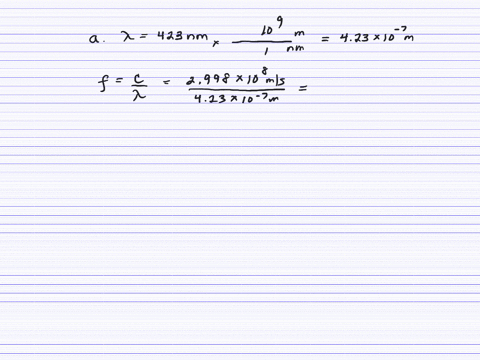 a. λ = 423 nm × 10⁹ m / 1 nm = 4.23 × 10⁻⁷ m
f = c/λ = 2.998 × 10⁸ m/s / 4.23 × 10⁻⁷ m =